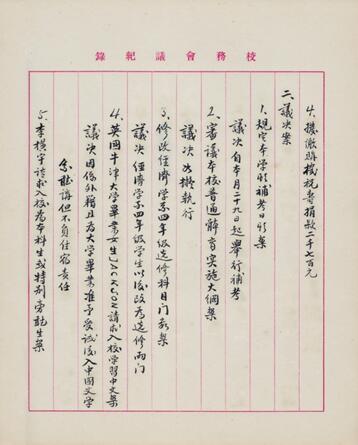 校務會議紀錄
4.撥繳蔣校祝壽捐款二千七百元
二、議決案
1.規定本學期補考日期案
議決 自本月二十九日起舉行補考
2.審議本校普通體育實施大綱案
議決 照擬執行
3.修改經濟學系四年級選修科目門數案
議決 經濟學系四年級學生以後改為選修兩門
4.英國牛津大學畢業女生Jackson請求入校學習中文案
議決 因係外籍且為大學畢業准予受試後入中國文學
系聽講但不負住宿責任
5.李橫宇請求入校為本科生或特別旁聽生案